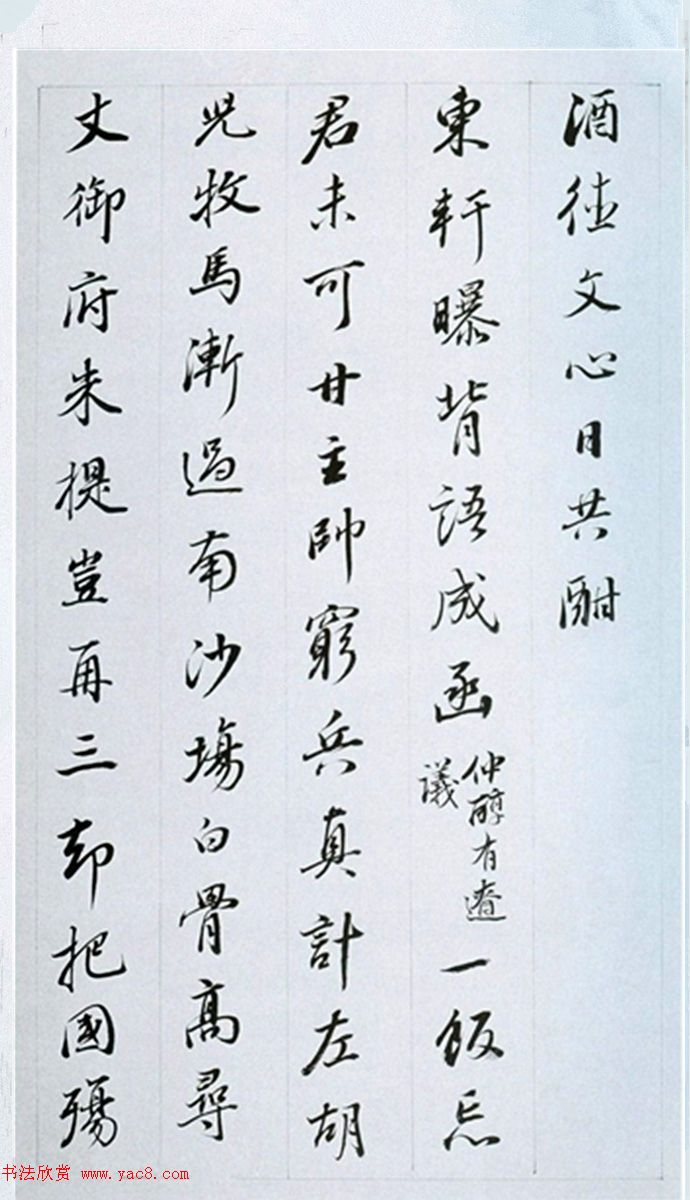 酒德文心日共酣
東軒曝背語成函
仲醇有遼
議
一飯忘
君未可甘主帥窮兵真計左胡
兒牧馬漸過南沙場白骨高尋
丈御府朱提豈再三却把國殤
书法欣赏 www.yac8.com